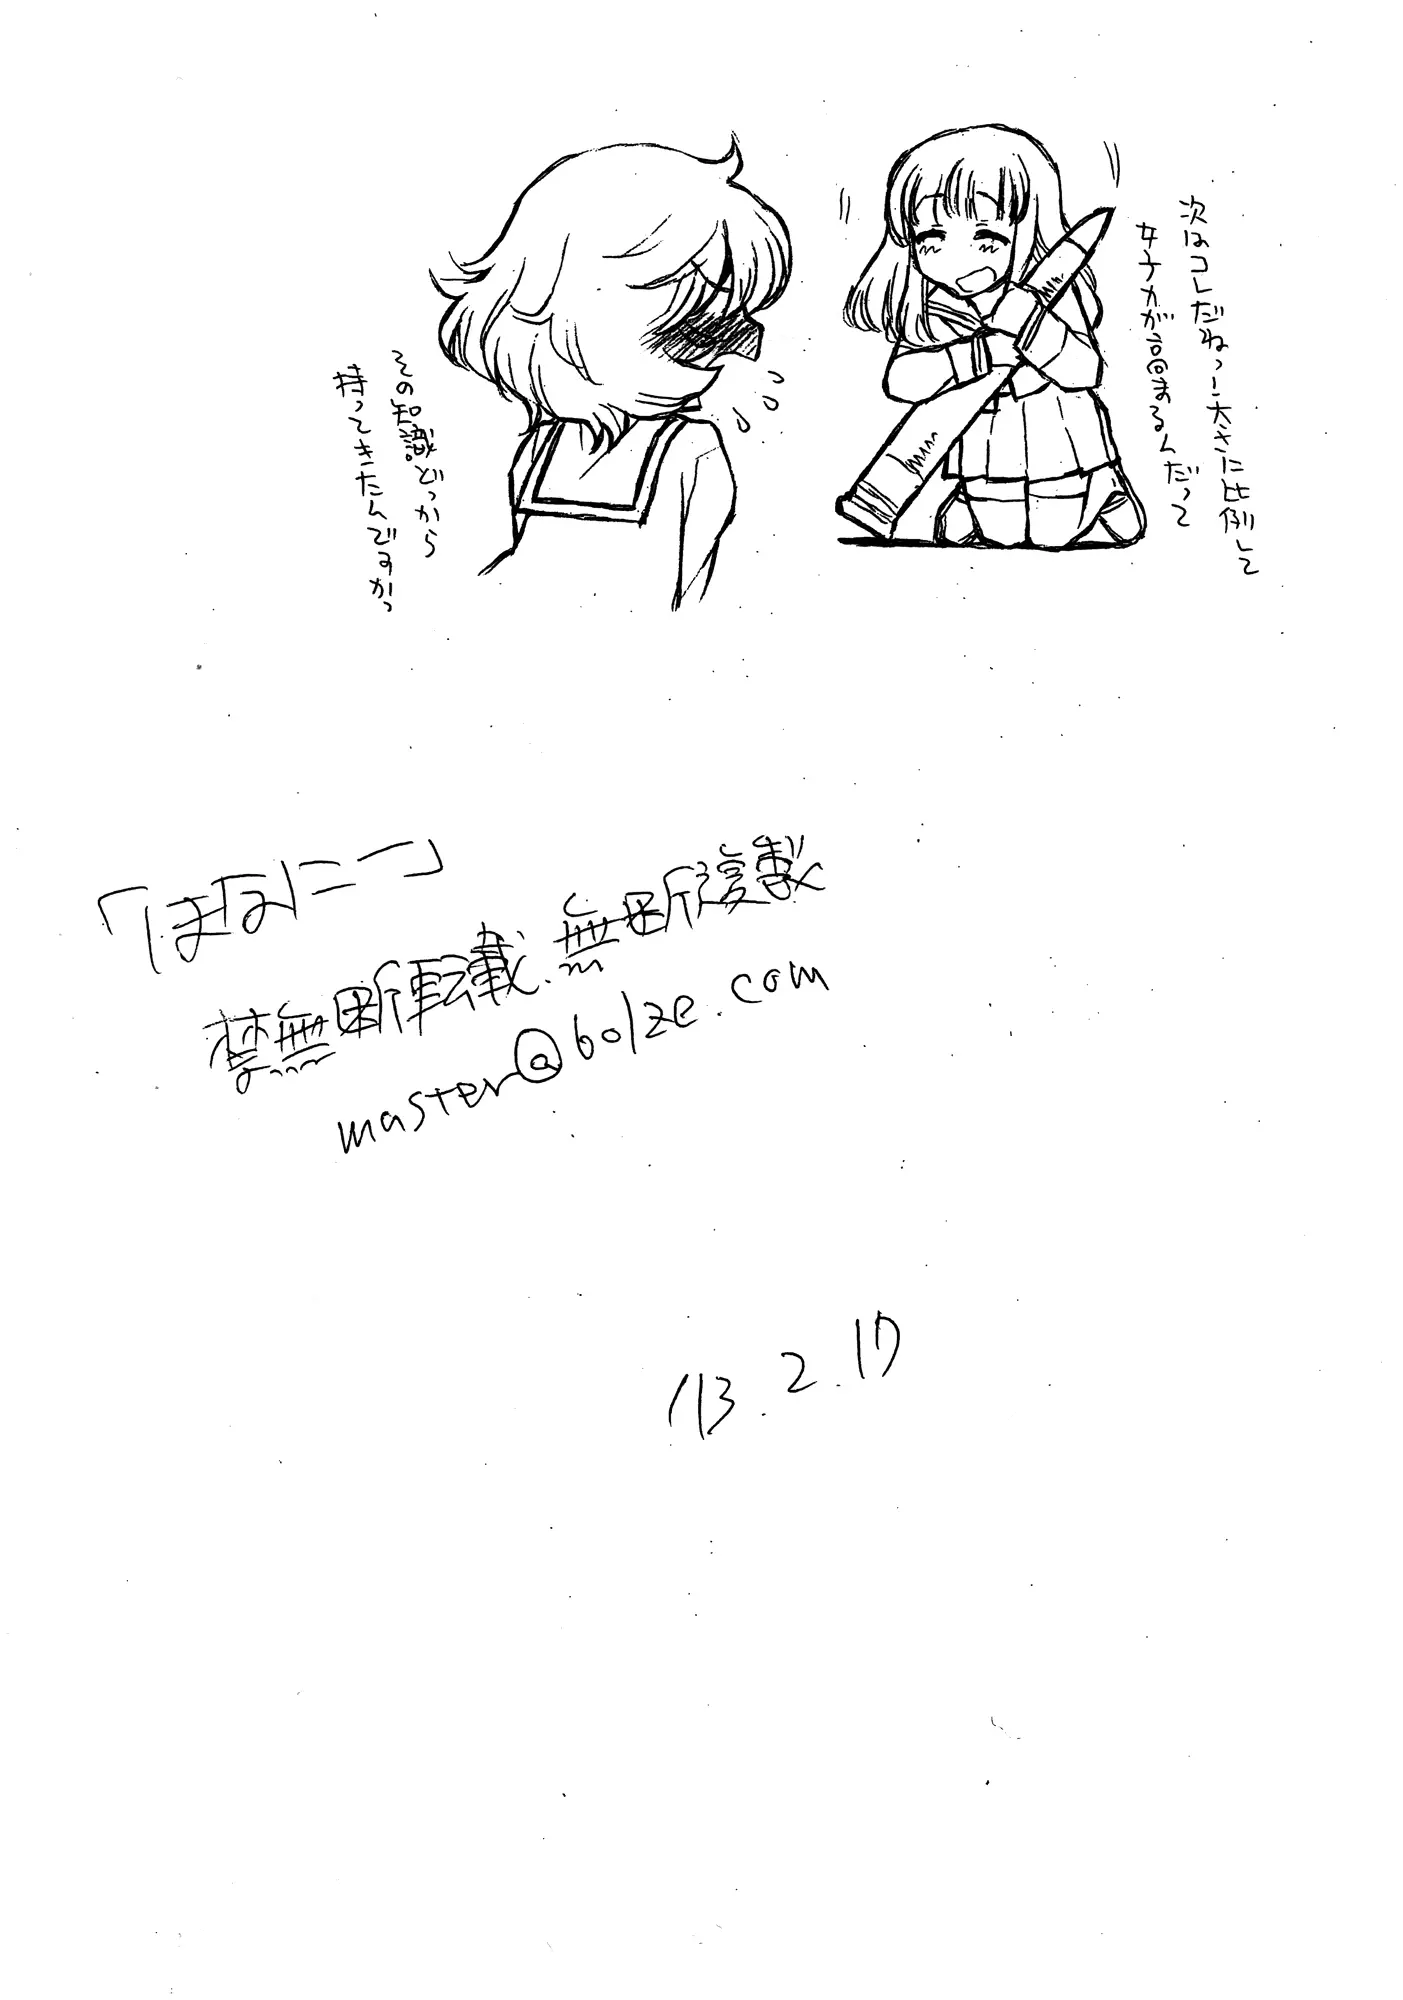 次はコレだねっ!太さに比例して
女子力が高まるんだって
その知識どっから
持ってきたんですかっ
「ほなにー」
禁無断転載.無断複製
master@bolze.com
'13.2.17